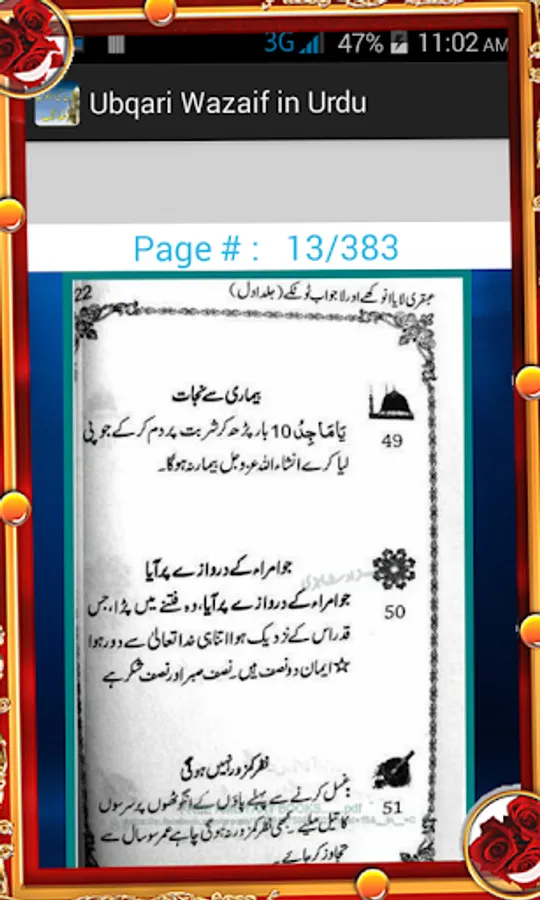 3G 47% 11:02 AM
Ubqari Wazaif in Urdu
Page # : 13/383
22
عبقری لایا انوکھے اور لاجواب ٹوٹکے (جلد اول)
بیماری سے نجات
49
یَامَاجِدُ 10 بار پڑھ کر شربت پر دم کر کے جو پی
لیا کرے انشاء اللہ عزوجل بیمار نہ ہوگا۔
جو امراء کے دروازے پر آیا
50
جو امراء کے دروازے پر آیا، وہ فتنے میں پڑا، جس
قدر اس کے نزدیک ہوا اتنا ہی خدا تعالیٰ سے دور ہوا
☆ ایمان دو نصف ہیں۔ نصف صبر اور نصف شکر ہے
نظر کمزور نہیں ہوگی
51
غسل کرنے سے پہلے پاؤں کے انگوٹھوں پر سرسوں
کا تیل ملیے۔ کبھی نظر کمزور نہ ہوگی چاہے عمر سو سال سے
تجاوز کر جائے۔